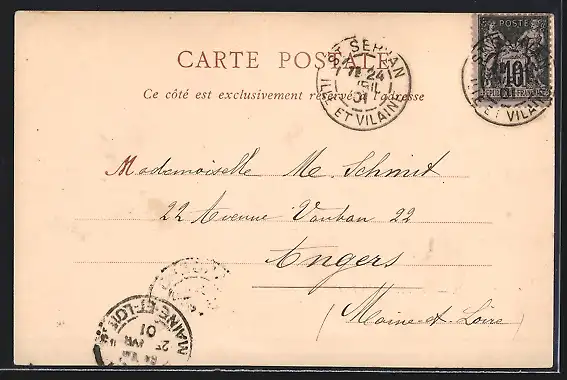 CARTE POSTALE
Ce côté est exclusivement réservé à l'adresse
ST SERVAN
7E 24
AVRIL
01
ILLE ET VILAINE
POSTES
10
Mademoiselle M. Schmit
22 Avenue Vauban 22
Angers
(Maine-et-Loire)
MAINE-ET-LOIRE
25
AVR
01